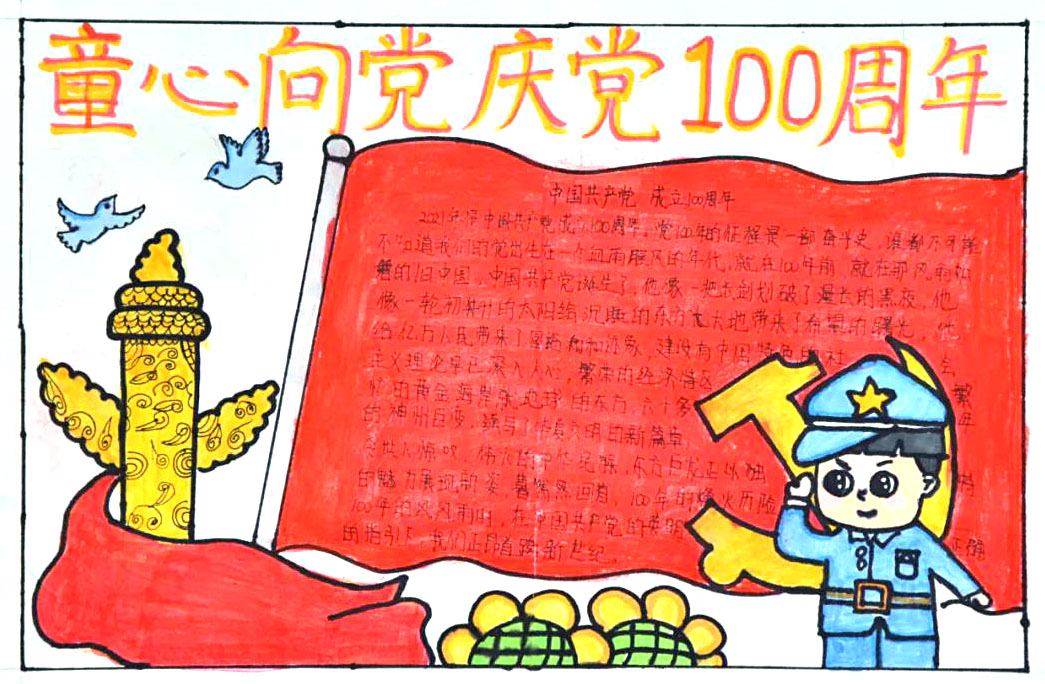 童心向党庆党100周年
中国共产党 成立100周年
2021年是中国共产党成立100周年，党100年的征程是一部奋斗史，谁都不可能
不知道我们的党出生在一个血雨腥风的年代，就在100年前，就在那风雨如
的旧中国，中国共产党诞生了，他像一把长剑划破了漫长的黑夜，他
像一轮初升的太阳给沉睡的东方大地带来了希望的曙光，他
给亿万人民带来了富裕和和谐家，建设有中国特色 社 会
主义理论早正深入人心，繁荣的经济特区 繁
的黄金海岸 地球的东方，六十多 年
的神州巨变，续写了华夏文明的新篇章，
伟大的中华民族，东方巨龙正以独 特
的魅力展现新姿 蓦然回首，100年的烽火历险
100年的风风雨雨，在中国共产党的英明 正确
的指引下，我们正昂首跨新世纪。